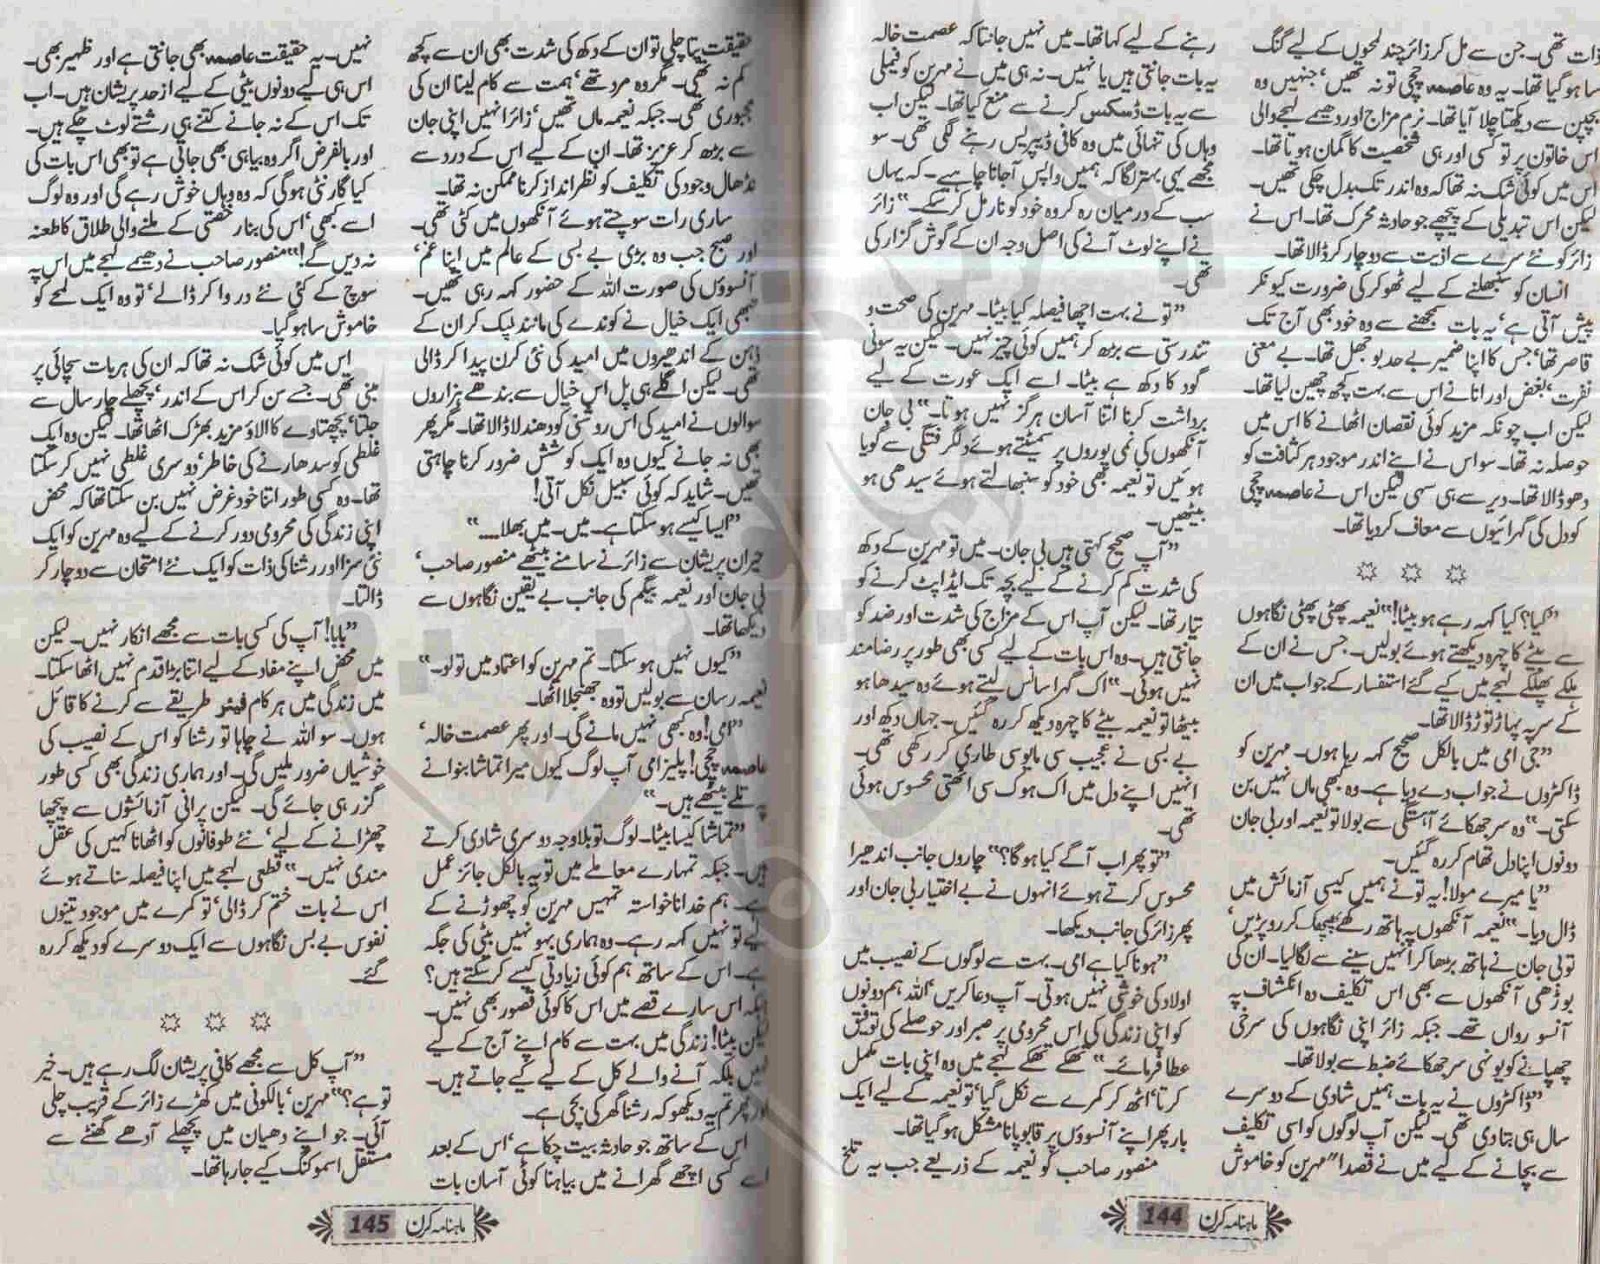 ذات تھی۔ جن سے مل کر زائر چند لمحوں کے لیے گنگ
سا ہو گیا تھا۔ یہ وہ عاصمہ چچی تو نہ تھیں، جنہیں وہ
بچپن سے دیکھتا چلا آیا تھا۔ نرم مزاج اور دھیمے لہجے والی
اس خاتون پر تو کسی اور ہی شخصیت کا گمان ہوتا تھا۔
اس میں کوئی شک نہ تھا کہ وہ اندر تک بدل چکی تھیں۔
لیکن اس تبدیلی کے پیچھے جو حادثہ محرک تھا۔ اس نے
زائر کو نئے سرے سے اذیت سے دوچار کر ڈالا تھا۔
انسان کو سنبھلنے کے لیے ٹھوکر کی ضرورت کیونکر
پیش آتی ہے، یہ بات سمجھنے سے وہ خود بھی آج تک
قاصر تھا، جس کا اپنا ضمیر بے حد بوجھل تھا۔ بے معنی
نفرت، بغض اور انا نے اس سے بہت کچھ چھین لیا تھا۔
لیکن اب چونکہ مزید کوئی نقصان اٹھانے کا اس میں
حوصلہ نہ تھا۔ سو اس نے اپنے اندر موجود ہر کثافت کو
دھو ڈالا تھا۔ دیر سے ہی سہی لیکن اس نے عاصمہ چچی
کو دل کی گہرائیوں سے معاف کر دیا تھا۔
☼ ☼ ☼
"کیا؟ کیا کہہ رہے ہو بیٹا!" نعیمہ پھٹی پھٹی نگاہوں
سے بیٹے کا چہرہ دیکھتے ہوئے بولیں۔ جس نے ان کے
ہلکے پھلکے لہجے میں کیے گئے استفسار کے جواب میں ان
کے سر پہ پہاڑ توڑ ڈالا تھا۔
"جی امی میں بالکل صحیح کہہ رہا ہوں۔ مہرین کو
ڈاکٹروں نے جواب دے دیا ہے۔ وہ کبھی ماں نہیں بن
سکتی۔" وہ سر جھکائے آہستگی سے بولا تو نعیمہ اور بی جان
دونوں اپنا دل تھام کر رہ گئیں۔
"یا میرے مولا! یہ تو نے ہمیں کیسی آزمائش میں
ڈال دیا۔" نعیمہ آنکھوں پہ ہاتھ رکھے پھپھک کر رو پڑیں،
تو بی جان نے ہاتھ بڑھا کر انہیں سینے سے لگا لیا۔ ان کی
بوڑھی آنکھوں سے بھی اس تکلیف دہ انکشاف پہ
آنسو رواں تھے۔ جبکہ زائر اپنی نگاہوں کی سرخی
چھپانے کو یونہی سر جھکائے ضبط سے بولا تھا۔
"ڈاکٹروں نے یہ بات ہمیں شادی کے دوسرے
سال ہی بتا دی تھی۔ لیکن آپ لوگوں کو اسی تکلیف
سے بچانے کے لیے میں نے قصداً" مہرین کو خاموش
رہنے کے لیے کہا تھا۔ میں نہیں جانتا کہ عصمت خالہ
یہ بات جانتی ہیں یا نہیں۔ نہ ہی میں نے مہرین کو فیملی
سے یہ بات ڈسکس کرنے سے منع کیا تھا۔ لیکن اب
وہاں کی تنہائی میں وہ کافی ڈیپریس رہنے لگی تھی۔ سو
مجھے یہی بہتر لگا کہ ہمیں واپس آجانا چاہیے۔ کہ یہاں
سب کے درمیان رہ کر وہ خود کو نارمل کر سکے۔" زائر
نے اپنے لوٹ آنے کی اصل وجہ ان کے گوش گزار کی
تھی۔
"تو نے بہت اچھا فیصلہ کیا بیٹا۔ مہرین کی صحت و
تندرستی سے بڑھ کر ہمیں کوئی چیز نہیں۔ لیکن یہ سونی
گود کا دکھ ہے بیٹا۔ اسے ایک عورت کے لیے
برداشت کرنا اتنا آسان ہرگز نہیں ہوتا۔" بی جان
آنکھوں کی نمی پوروں پر سمیٹتے ہوئے دلگرفتگی سے گویا
ہوئیں تو نعیمہ بھی خود کو سنبھالتے ہوئے سیدھی ہو
بیٹھیں۔
"آپ صحیح کہتی ہیں بی جان۔ میں تو مہرین کے دکھ
کی شدت کم کرنے کے لیے بچہ تک ایڈاپٹ کرنے کو
تیار تھا۔ لیکن آپ اس کے مزاج کی شدت اور ضد کو
جانتی ہیں۔ وہ اس بات کے لیے کسی بھی طور پر رضامند
نہیں ہوئی۔" اک گہرا سانس لیتے ہوئے وہ سیدھا ہو
بیٹھا تو نعیمہ بیٹے کا چہرہ دیکھ کر رہ گئیں۔ جہاں دکھ اور
بے بسی نے عجیب سی مایوسی طاری کر رکھی تھی۔
انہیں اپنے دل میں اک ہوک سی اٹھتی محسوس ہوئی
تھی۔
"تو پھر اب آگے کیا ہوگا؟" چاروں جانب اندھیرا
محسوس کرتے ہوئے انہوں نے بے اختیار بی جان اور
پھر زائر کی جانب دیکھا۔
"ہونا کیا ہے امی۔ بہت سے لوگوں کے نصیب میں
اولاد کی خوشی نہیں ہوتی۔ آپ دعا کریں، اللہ ہم دونوں
کو اپنی زندگی کی اس محرومی پر صبر اور حوصلے کی توفیق
عطا فرمائے۔" تھکے تھکے لہجے میں وہ اپنی بات مکمل
کرتا، اٹھ کر کمرے سے نکل گیا، تو نعیمہ کے لیے ایک
بار پھر اپنے آنسوؤں پر قابو پانا مشکل ہو گیا تھا۔
منصور صاحب کو نعیمہ کے ذریعے جب یہ تلخ
ماہنامہ کرن 144
حقیقت پتا چلی تو ان کے دکھ کی شدت بھی ان سے کچھ
کم نہ تھی۔ مگر وہ مرد تھے، ہمت سے کام لینا ان کی
مجبوری تھی۔ جبکہ نعیمہ ماں تھیں، زائر انہیں اپنی جان
سے بڑھ کر عزیز تھا۔ ان کے لیے اس کے درد سے
نڈھال وجود کی تکلیف کو نظر انداز کرنا ممکن نہ تھا۔
ساری رات سوچتے ہوئے آنکھوں میں کٹی تھی۔
اور صبح جب وہ بڑی بے بسی کے عالم میں اپنا غم،
آنسوؤں کی صورت اللہ کے حضور کہہ رہی تھیں۔
تبھی ایک خیال نے کوندے کی مانند لپک کر ان کے
ذہن کے اندھیروں میں امید کی نئی کرن پیدا کر ڈالی
تھی۔ لیکن اگلے ہی پل اس خیال سے بندھے ہزاروں
سوالوں نے امید کی اس روشنی کو دھندلا ڈالا تھا۔ مگر پھر
بھی نہ جانے کیوں وہ ایک کوشش ضرور کرنا چاہتی
تھیں۔ شاید کہ کوئی سبیل نکل آتی!
"ایسا کیسے ہو سکتا ہے۔ میں۔ میں بھلا...."
حیران پریشان سے زائر نے سامنے بیٹھے منصور صاحب،
بی جان اور نعیمہ بیگم کی جانب بے یقین نگاہوں سے
دیکھا تھا۔
"کیوں نہیں ہو سکتا۔ تم مہرین کو اعتماد میں تو لو۔"
نعیمہ رسان سے بولیں تو وہ جھنجلا اٹھا۔
"امی! وہ کبھی نہیں مانے گی۔ اور پھر عصمت خالہ،
عاصمہ چچی! پلیز امی آپ لوگ کیوں میرا تماشا بنوانے
پہ تلے بیٹھے ہیں۔"
"تماشا کیسا بیٹا۔ لوگ تو بلاوجہ دوسری شادی کرتے
ہیں۔ جبکہ تمہارے معاملے میں تو یہ بالکل جائز عمل
ہے۔ ہم خدانخواستہ تمہیں مہرین کو چھوڑنے کے
لیے تو نہیں کہہ رہے۔ وہ ہماری بہو نہیں بیٹی کی جگہ
ہے۔ اس کے ساتھ ہم کوئی زیادتی کیسے کر سکتے ہیں؟
جبکہ اس سارے قصے میں اس کا کوئی قصور بھی نہیں۔
لیکن بیٹا! زندگی میں بہت سے کام اپنے آج کے لیے
نہیں بلکہ آنے والے کل کے لیے کیے جاتے ہیں۔
اور پھر تم یہ دیکھو کہ رشنا گھر کی بچی ہے۔
اس کے ساتھ جو حادثہ بیت چکا ہے، اس کے بعد
اسے کسی اچھے گھرانے میں بیاہنا کوئی آسان بات
نہیں۔ یہ حقیقت عاصمہ بھی جانتی ہے اور ظہیر بھی۔
اس ہی لیے دونوں بیٹی کے لیے از حد پریشان ہیں۔ اب
تک اس کے نہ جانے کتنے ہی رشتے لوٹ چکے ہیں۔
اور بالفرض اگر وہ بیاہی بھی جاتی ہے تو بھی اس بات کی
کیا گارنٹی ہوگی کہ وہ وہاں خوش رہے گی اور وہ لوگ
اسے کبھی، اس کی بنا رخصتی کے ملنے والی طلاق کا طعنہ
نہ دیں گے!" منصور صاحب نے دھیمے لہجے میں اس پہ
سوچ کے کئی نئے در وا کر ڈالے، تو وہ ایک لمحے کو
خاموش سا ہو گیا۔
اس میں کوئی شک نہ تھا کہ ان کی ہر بات سچائی پر
مبنی تھی۔ جسے سن کر اس کے اندر، پچھلے چار سال سے
جلتا، پچھتاوے کا الاؤ مزید بھڑک اٹھا تھا۔ لیکن وہ ایک
غلطی کو سدھارنے کی خاطر، دوسری غلطی نہیں کر سکتا
تھا۔ وہ کسی طور اتنا خود غرض نہیں بن سکتا تھا کہ محض
اپنی زندگی کی محرومی دور کرنے کے لیے وہ مہرین کو ایک
نئی سزا اور رشنا کی ذات کو ایک نئے امتحان سے دوچار کر
ڈالتا۔
"بابا! آپ کی کسی بات سے مجھے انکار نہیں۔ لیکن
میں محض اپنے مفاد کے لیے اتنا بڑا قدم نہیں اٹھا سکتا۔
میں زندگی میں ہر کام فیئر طریقے سے کرنے کا قائل
ہوں۔ سو اللہ نے چاہا تو رشنا کو اس کے نصیب کی
خوشیاں ضرور ملیں گی۔ اور ہماری زندگی بھی کسی طور
گزر ہی جائے گی۔ لیکن پرانی آزمائشوں سے پیچھا
چھڑانے کے لیے، نئے طوفانوں کو اٹھانا کہیں کی عقل
مندی نہیں۔" قطعی لہجے میں اپنا فیصلہ سناتے ہوئے
اس نے بات ختم کر ڈالی، تو کمرے میں موجود تینوں
نفوس بے بس نگاہوں سے ایک دوسرے کو دیکھ کر رہ
گئے۔
☼ ☼ ☼
"آپ کل سے مجھے کافی پریشان لگ رہے ہیں۔ خیر
تو ہے؟" مہرین، بالکونی میں کھڑے زائر کے قریب چلی
آئی۔ جو اپنے دھیان میں پچھلے آدھے گھنٹے سے
مستقل اسموکنگ کیے جا رہا تھا۔
ماہنامہ کرن 145